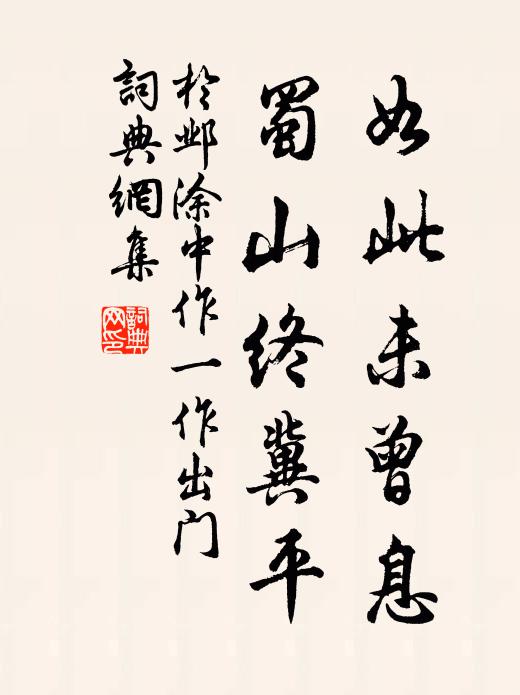 如此未曾息
蜀山終冀平
於邺涂中作一作出门
詞典網集
詞典网印